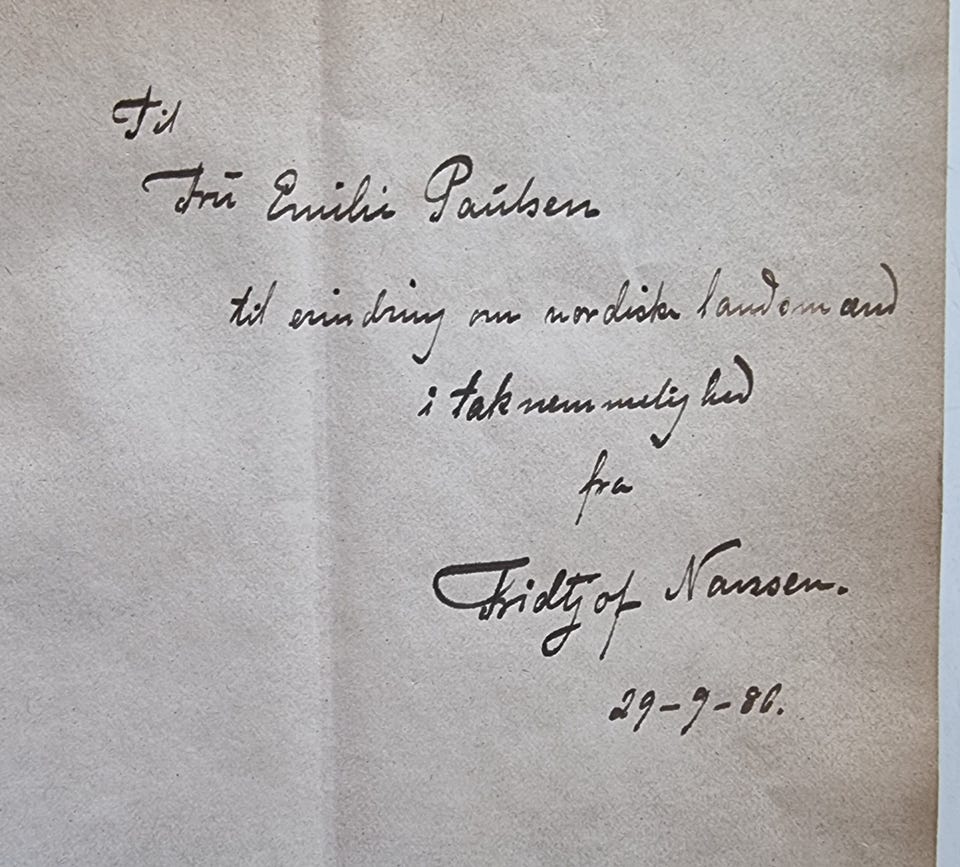 Til
Frū Emilie Paūlsen
til erindring om nordiske landsmænd
i taknemmelighed
fra
Fridtjof Nansen.
29-9-86.